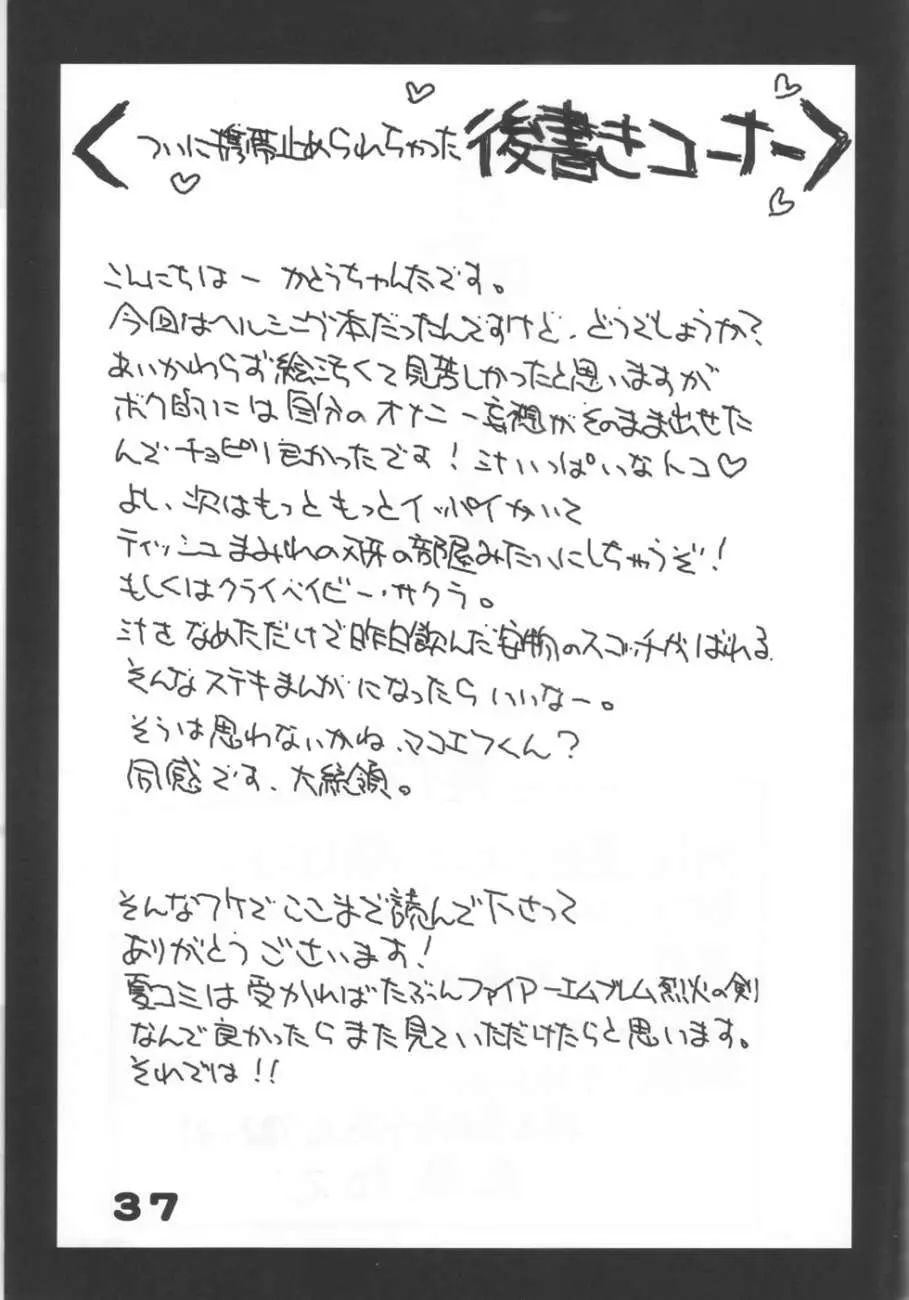 ついに携帯止められちゃった 後書きコーナー
こんにちはー かとうちゃんたです。
今回はヘルシング本だったんですけど、どうでしょうか?
あいかわらず絵汚くて見苦しかったと思いますが
ボク的には自分のオナニー妄想がそのまま出せた
んで チョピリ良かったです! 汁いっぱいなトコ♡
よし、次はもっともっとイッパイかいて
ティッシュまみれの部屋みたいにしちゃうぞ!
もしくはクライベイビー・サクラ。
汁をなめただけで昨日飲んだ安物のスコッチがばれる
そんなステキまんがになったらいいなー。
そうは思わないかね、マコエフくん?
同感です、大統領。
そんなワケでここまで読んで下さって
ありがとうございます!
夏コミは受かればたぶんファイアーエムブレム烈火の剣
なんで良かったらまた見ていただけたらと思います。
それでは!!
37